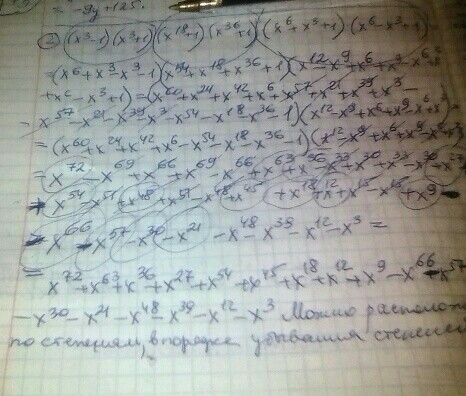 = -9y+125.
② (x³-1)(x³+1)(x¹⁸+1)(x³⁶+1)(x⁶+x³+1)(x⁶-x³+1)
=(x⁶+x³-x³-1)(x⁵⁴+x¹⁸+x³⁶+1)(x¹²-x⁹+x⁶+x⁹-x⁶+x³
+x⁶-x³+1)=(x⁶⁰+x²⁴+x⁴²+x⁶+x⁵⁷+x²¹+x³⁹+x³-
-x⁵⁷-x²¹-x³⁹-x³-x⁵⁴-x¹⁸-x³⁶-1)(x¹²-x⁹+x⁶+x⁹-x⁶+x³
=(x⁶⁰+x²⁴+x⁴²+x⁶-x⁵⁴-x¹⁸-x³⁶-1)(x¹²-x⁹+x⁶+x⁹
=x⁷²-x⁶⁹+x⁶⁶+x⁶⁹-x⁶⁶+x⁶³+x³⁶-x³³+x³⁰+x³³-x³⁰+x²⁷
x⁵⁴-x⁵¹+x⁴⁸+x⁵¹-x⁴⁸+x⁴⁵+x¹⁸+x¹²+x¹⁵-x¹⁵+x⁹-
-x⁶⁶-x⁵⁷-x³⁰-x²¹-x⁴⁸-x³⁹-x¹²-x³=
=x⁷²+x⁶³+x³⁶+x²⁷+x⁵⁴+x⁴⁵+x¹⁸+x¹²+x⁹-x⁶⁶-x⁵⁷
-x³⁰-x²¹-x⁴⁸-x³⁹-x¹²-x³ Можно располож
по степеням, в порядке убывания степеней